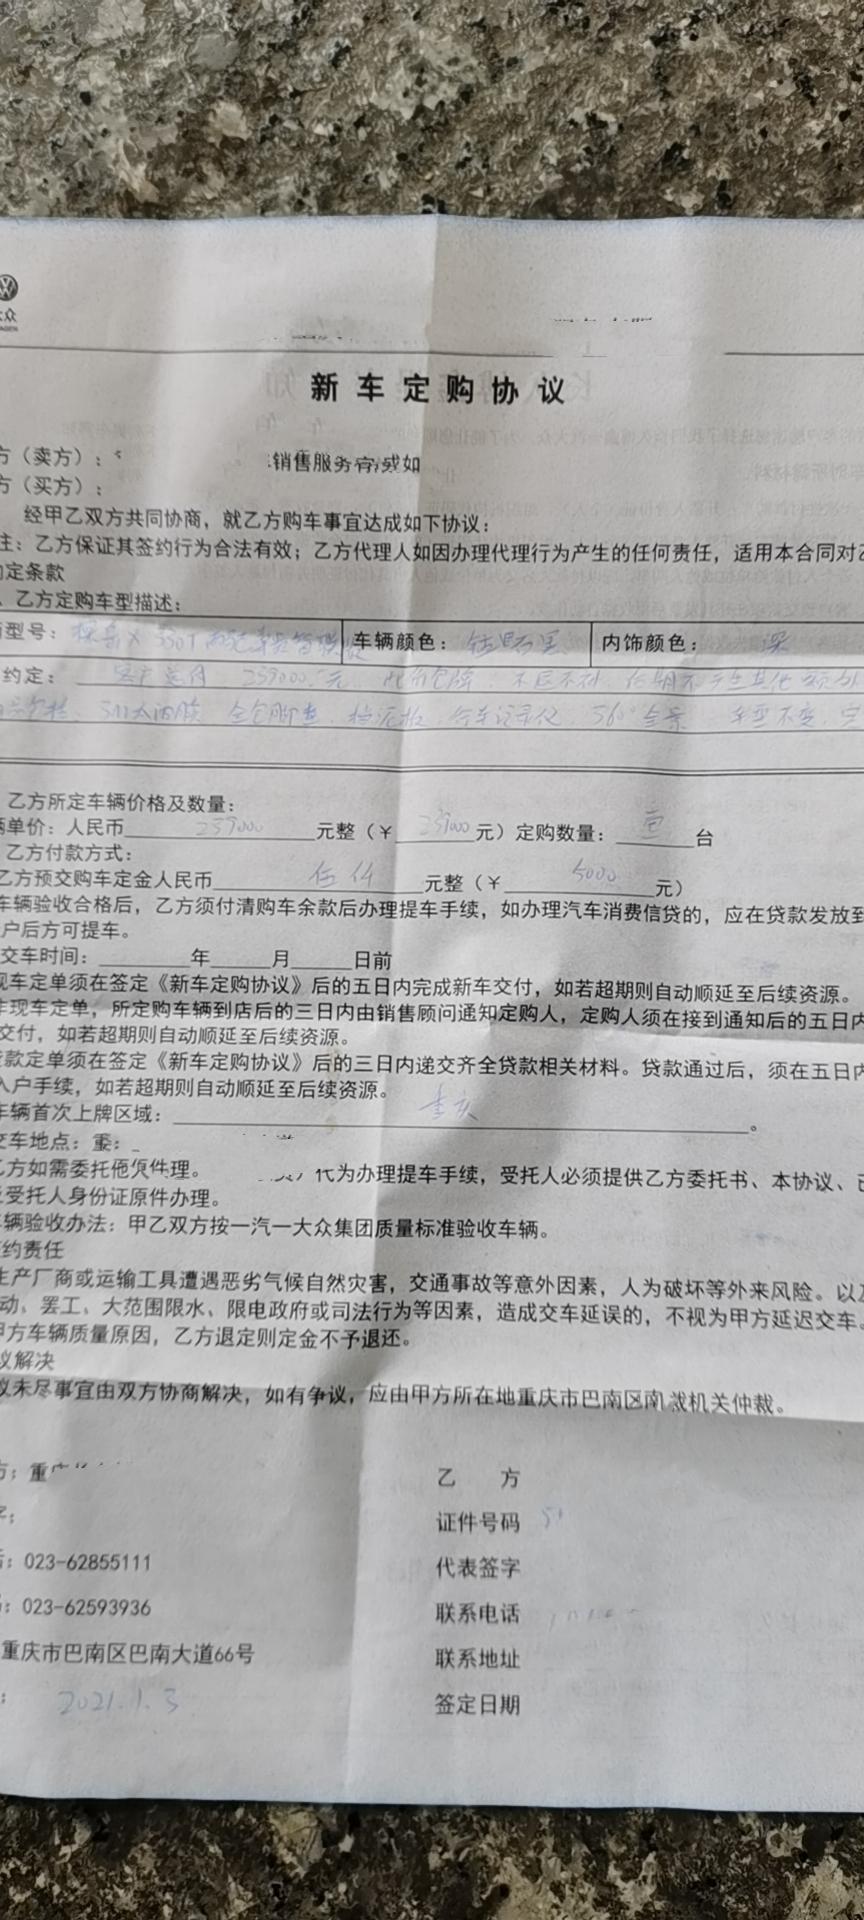 众
新车定购协议
方（卖方）：
销售服务有
方（买方）：
经甲乙双方共同协商，就乙方购车事宜达成如下协议：
注：乙方保证其签约行为合法有效；乙方代理人如因办理代理行为产生的任何责任，适用本合同对乙
定条款
、乙方定购车型描述：
型号：探岳X 330T 车辆颜色： 内饰颜色：深
约定：客户总付 259000.元 此价包除 不退不补 后期不产生其他额外
3M太阳膜 全包脚垫 挡泥板 行车记录仪 360°全景 车型不变
乙方所定车辆价格及数量：
单价：人民币259000元整（￥259000元）定购数量：壹台
乙方付款方式：
乙方预交购车定金人民币伍仟元整（￥5000元）
车辆验收合格后，乙方须付清购车余款后办理提车手续，如办理汽车消费信贷的，应在贷款发放到
户后方可提车。
交车时间：____年____月____日前
现车定单须在签定《新车定购协议》后的五日内完成新车交付，如若超期则自动顺延至后续资源。
非现车定单，所定购车辆到店后的三日内由销售顾问通知定购人，定购人须在接到通知后的五日内
交付，如若超期则自动顺延至后续资源。
贷款定单须在签定《新车定购协议》后的三日内递交齐全贷款相关材料。贷款通过后，须在五日内
入户手续，如若超期则自动顺延至后续资源。
车辆首次上牌区域：重庆。
交车地点：重
乙方如需委托他 代为办理提车手续，受托人必须提供乙方委托书、本协议、
受托人身份证原件办理。
车辆验收办法：甲乙双方按一汽一大众集团质量标准验收车辆。
约责任
生产厂商或运输工具遭遇恶劣气候自然灾害，交通事故等意外因素，人为破坏等外来风险。以及
动、罢工、大范围限水、限电政府或司法行为等因素，造成交车延误的，不视为甲方延迟交车。
甲方车辆质量原因，乙方退定则定金不予退还。
议解决
议未尽事宜由双方协商解决，如有争议，应由甲方所在地重庆市巴南区 机关仲裁。
方：重庆
乙 方
字：
证件号码 51
：023-62855111
代表签字
：023-62593936
联系电话
重庆市巴南区巴南大道66号
联系地址
：2021.1.3
签定日期